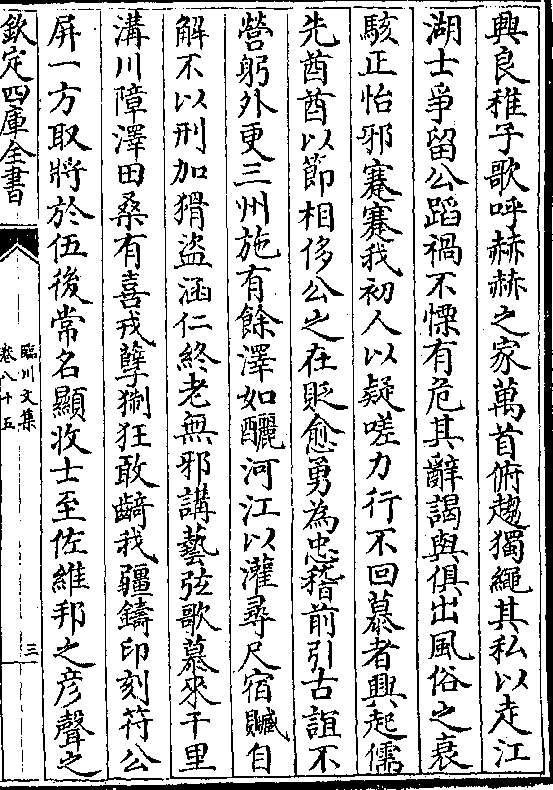 興良稚子歌呼赫赫之家萬首俯趨獨繩其私以走江
湖士爭留公蹈禍不慄有危其辭謁與俱出風俗之衰
駭正怡邪蹇蹇我初人以疑嗟力行不回慕者興起儒
先酋酋以節相侈公之在貶愈勇為忠稽前引古誼不
營躬外更三州施有餘澤如釃河江以灌尋尺宿贓自
解不以刑加猾盜涵仁終老無邪講藝弦歌慕來千里
溝川障澤田桑有喜戎孽猘狂敢齮我疆鑄印刻符公
屏一方取將於伍後常名顯收士至佐維邦之彥聲之
欽定四庫全書
臨川文集
卷八十五
三